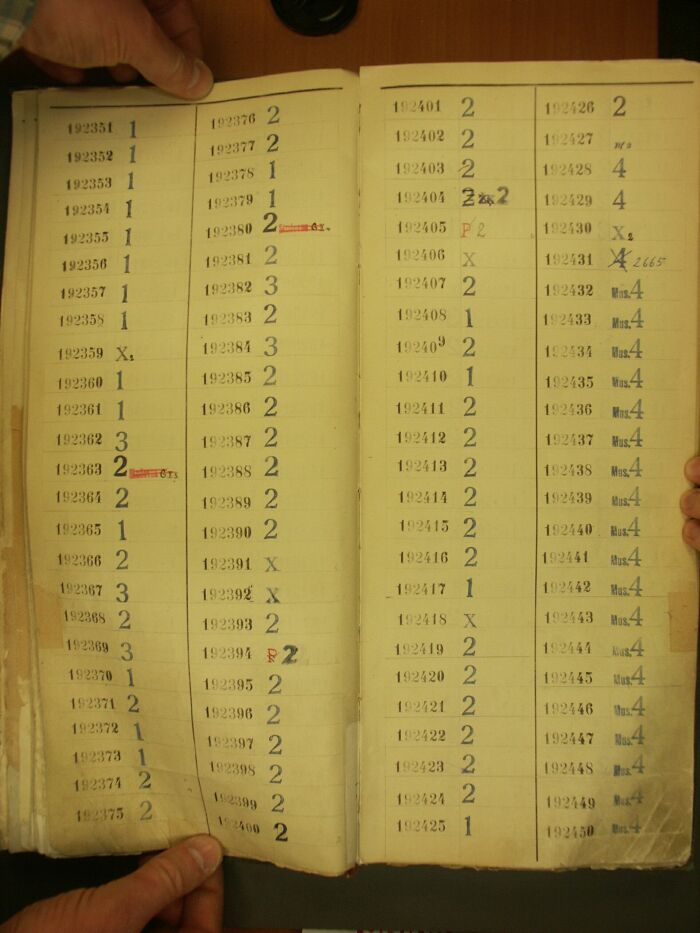 192351 1
192352 1
192353 1
192354 1
192355 1
192356 1
192357 1
192358 1
192359 X s
192360 1
192361 1
192362 3
192363 2
192364 2
192365 1
192366 2
192367 3
192368 2
192369 3
192370 1
192371 2
192372 1
192373 1
192374 2
192375 2
192376 2
192377 2
192378 1
192379 1
192380 2
192381 2
192382 3
192383 2
192384 3
192385 2
192386 2
192387 2
192388 2
192389 2
192390 2
192391 X
192392 X
192393 2
192394 P 2
192395 2
192396 2
192397 2
192398 2
192399 2
192400 2
192401 2
192402 2
192403 2
192404 2 2
192405 P 2
192406 X
192407 2
192408 1
192409 2
192410 1
192411 2
192412 2
192413 2
192414 2
192415 2
192416 2
192417 1
192418 X
192419 2
192420 2
192421 2
192422 2
192423 2
192424 2
192425 1
192426 2
192427
192428 4
192429 4
192430 X s
192431 4 2665
192432 Mus. 4
192433 Mus. 4
192434 Mus. 4
192435 Mus. 4
192436 Mus. 4
192437 Mus. 4
192438 Mus. 4
192439 Mus. 4
192440 Mus. 4
192441 Mus. 4
192442 Mus. 4
192443 Mus. 4
192444 Mus. 4
192445 Mus. 4
192446 Mus. 4
192447 Mus. 4
192448 Mus. 4
192449 Mus. 4
192450 Mus. 4